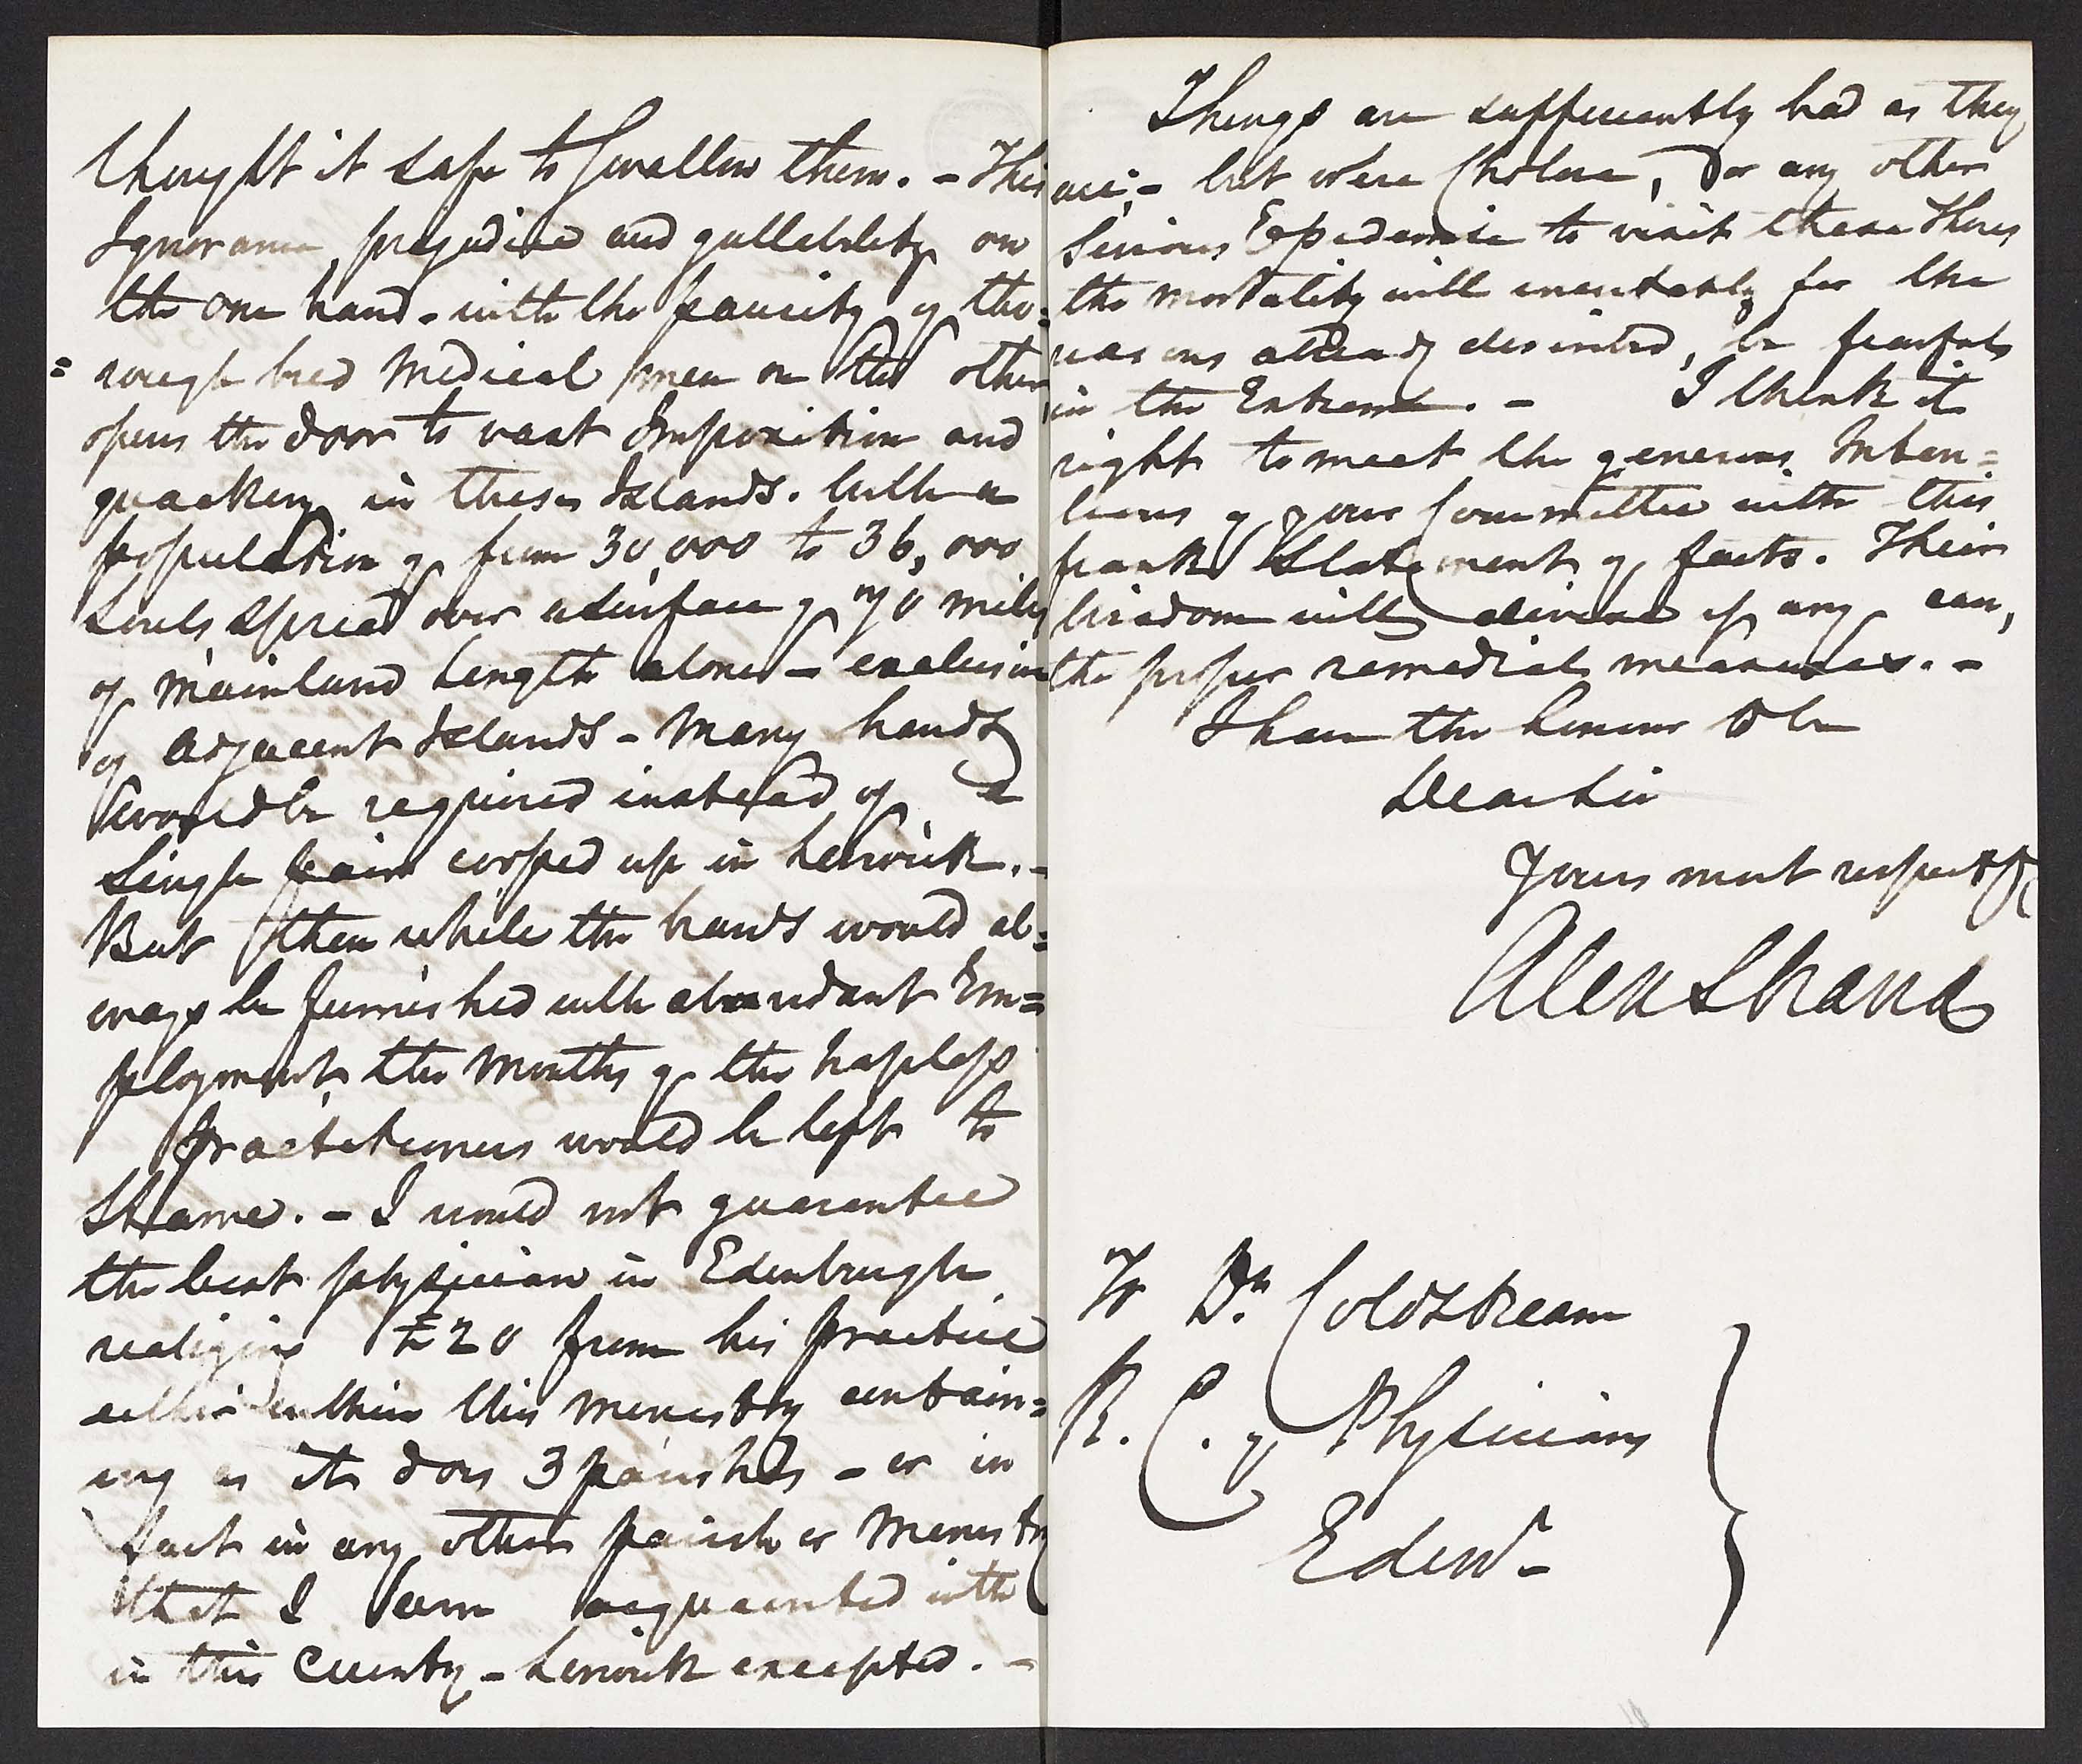 thought it safe to swallow them. - This
Ignorance, prejudice and gullebility on
the one hand - with the paucity of tho=
=rough bred Medical men on the other
opens the door to vast Imposition and
quackery in these Islands. With a
population of from 30,000 to 36,000
Souls spread over a surface of 70 miles
of mainland length alone - exclusive
of adjacent Islands - Many hands
would be required instead of a
Single pair cooped up in Lerwick. -
But then while the hands would al=
ways be furnished with abundant Em=
ployment, the Mouths of the hapless
Practitioners would be left to
Starve. - I would not guarantee
the best physician in Edinburgh
realizing £20 from his practice
either within this ministry contain=
ing as it does 3 parishes - or in
fact in any other parish or Ministry
that I am acquainted with
in this County - Lerwick excepted. -
Things are sufficiently bad as they
are; - but were Cholera, or any other
Serious Epidemic to visit these Shores
the mortality will inevitably for the
reasons already described, be fearful
in the Extreme. - I think it
right to meet the generous Inten=
tions of your Committee with this
frank Statement of facts. Their
wisdom will devise if any can,
the proper remedial measures. -
I have the honour to be
Dear Sir
Yours most respectfy
Alex Shand
To Dr. Coldstream
R. C. of Physicians
Edinr -